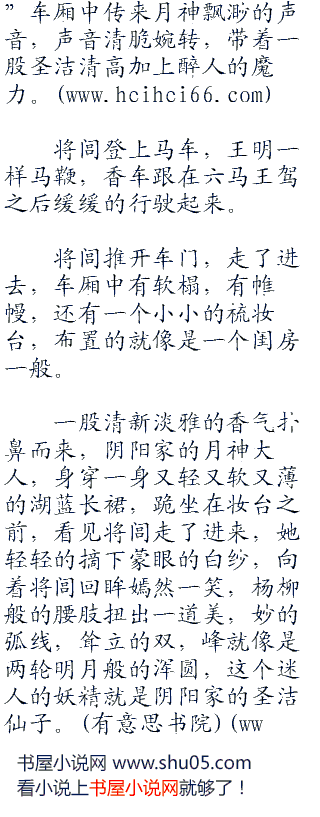 ”车厢中传来月神飘渺的声
音，声音清脆婉转，带着一
股圣洁清高加上醉人的魔
力。(www.hcihci66.com)
将闾登上马车，王明一
样马鞭，香车跟在六马王驾
之后缓缓的行驶起来。
将闾推开车门，走了进
去，车厢中有软榻，有帷
幔，还有一个小小的梳妆
台，布置的就像是一个闺房
一般。
一股清新淡雅的香气扑
鼻而来，阴阳家的月神大
人，身穿一身又轻又软又薄
的湖蓝长裙，跪坐在妆台之
前，看见将闾走了进来，她
轻轻的摘下蒙眼的白纱，向
着将闾回眸嫣然一笑，杨柳
般的腰肢扭出一道美，妙的
弧线，耸立的双，峰就像是
两轮明月般的浑圆，这个迷
人的妖精就是阴阳家的圣洁
仙子。(有意思书院)(ww
书屋小说网 www.shu05.com
看小说上书屋小说网就够了！